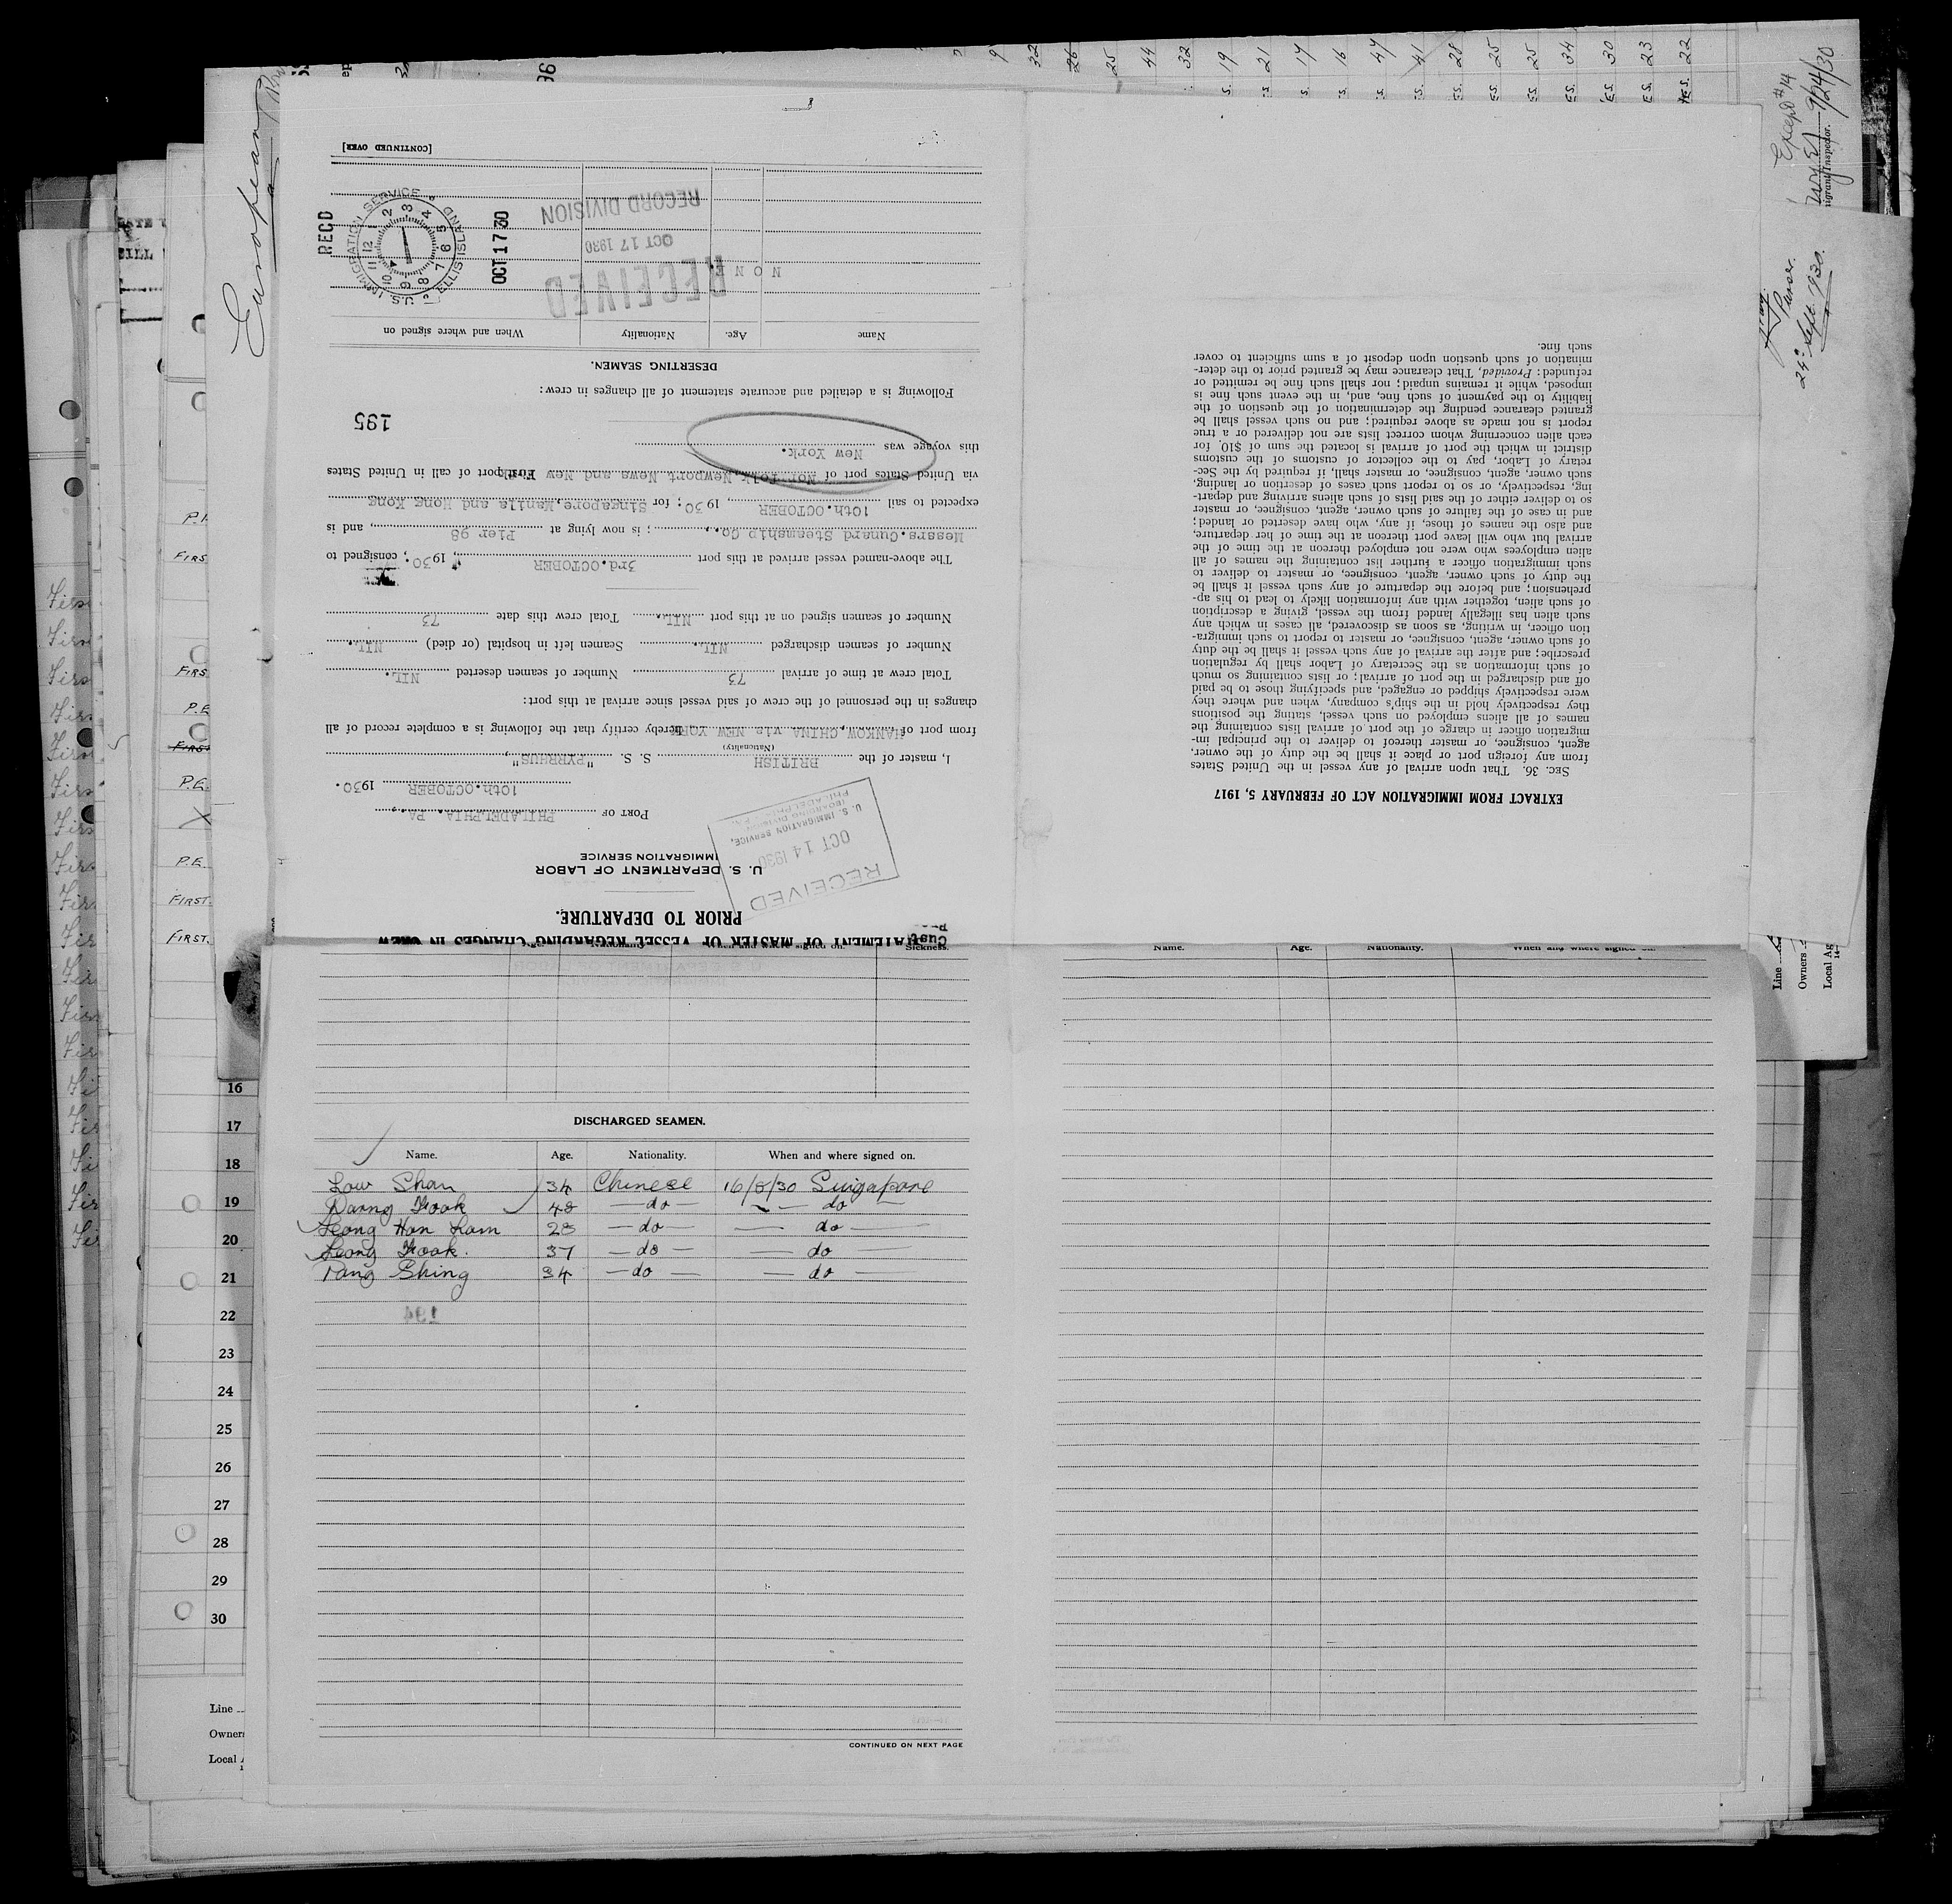 [CONTINUED OVER]
STATEMENT OF MASTER OF VESSEL REGARDING CHANGES IN CREW
PRIOR TO DEPARTURE.
U. S. DEPARTMENT OF LABOR
IMMIGRATION SERVICE
RECEIVED
OCT 14 1930
U. S. IMMIGRATION SERVICE,
BOARDING DIVISION
PHILADELPHIA
PORT OF PHILADELPHIA. PA.
10th.OCTOBER 1930.
I, master of the BRITISH S. S. "PYRRHUS",
(Nationality)
from port of HANKOW, CHINA via NEW YORK hereby certify that the following is a complete record of all
changes in the personnel of the crew of said vessel since arrival at this port:
Total crew at time of arrival 73 Number of seamen deserted NIL.
Number of seamen discharged NIL. Seamen left in hospital (or died) NIL.
Number of seamen signed on at this port NIL. Total crew this date 73
The above-named vessel arrived at this port 3rd.OCTOBER, 1930; consigned to
Messrs.Cunard Steamship Co.; is now lying at Pier 98, and is
expected to sail 10th.OCTOBER, 1930; for Singapore,Manila and Hong Kong
via United States port of Norfolk,Newport News and New York First port of call in United States
this voyage was New York.
195
Following is a detailed and accurate statement of all changes in crew:
DESERTING SEAMEN.
Name Age. Nationality When and where signed on
N O N E.
RECEIVED
OCT 17 1930
RECORD DIVISION
REC'D
U.S. IMMIGRATION SERVICE
ELLIS ISLAND
OCT 17 30
EXTRACT FROM IMMIGRATION ACT OF FEBRUARY 5, 1917
SEC. 36. That upon arrival of any vessel in the United States
from any foreign port or place it shall be the duty of the owner,
agent, consignee, or master thereof to deliver to the principal im-
migration officer in charge of the port of arrival lists containing the
names of all aliens employed on such vessel, stating the positions
they respectively hold in the ship's company, when and where they
were respectively shipped or engaged, and specifying those to be paid
off and discharged in the port of arrival; or lists containing so much
of such information as the Secretary of Labor shall by regulation
prescribe; and after the arrival of any such vessel it shall be the duty
of such owner, agent, consignee, or master to report to such immigra-
tion officer, in writing, as soon as discovered, all cases in which any
such alien has illegally landed from the vessel, giving a description
of such alien, together with any information likely to lead to his ap-
prehension; and before the departure of any such vessel it shall be
the duty of such owner, agent, consignee, or master to deliver to
such immigration officer a further list containing the names of all
alien employees who were not employed thereon at the time of the
arrival but who will leave port thereon at the time of her departure,
and also the names of those, if any, who have deserted or landed;
and in case of the failure of such owner, agent, consignee, or master
so to deliver either of the said lists of such aliens arriving and depart-
ing, respectively, or so to report such cases of desertion or landing,
such owner, agent, consignee, or master shall, if required by the Sec-
retary of Labor, pay to the collector of customs of the customs
district in which the port of arrival is located the sum of $10 for
each alien concerning whom correct lists are not delivered or a true
report is not made as above required; and no such vessel shall be
granted clearance pending the determination of the question of the
liability to the payment of such fine, and, in the event such fine is
imposed, while it remains unpaid; nor shall such fine be remitted or
refunded: Provided, That clearance may be granted prior to the deter-
mination of such question upon deposit of a sum sufficient to cover
such fine.
European
Except #14
9/24/30
Purser.
24th Sept. 1930.
DISCHARGED SEAMEN.
Name. Age. Nationality. When and where signed on.
Low Shan 34 Chinese 16/5/30 Singapore
Darng Fook 48 — do — — do —
Leong Hon Lam 28 — do — — do —
Leong Fook. 37 — do — — do —
Pang Shing 34 — do — — do —
194
CONTINUED ON NEXT PAGE
Name. Age. Nationality. When and where signed on.
16
17
18
19
20
21
22
23
24
25
26
27
28
29
30
Line
Owners
Local
Line
Owners
Local Ag